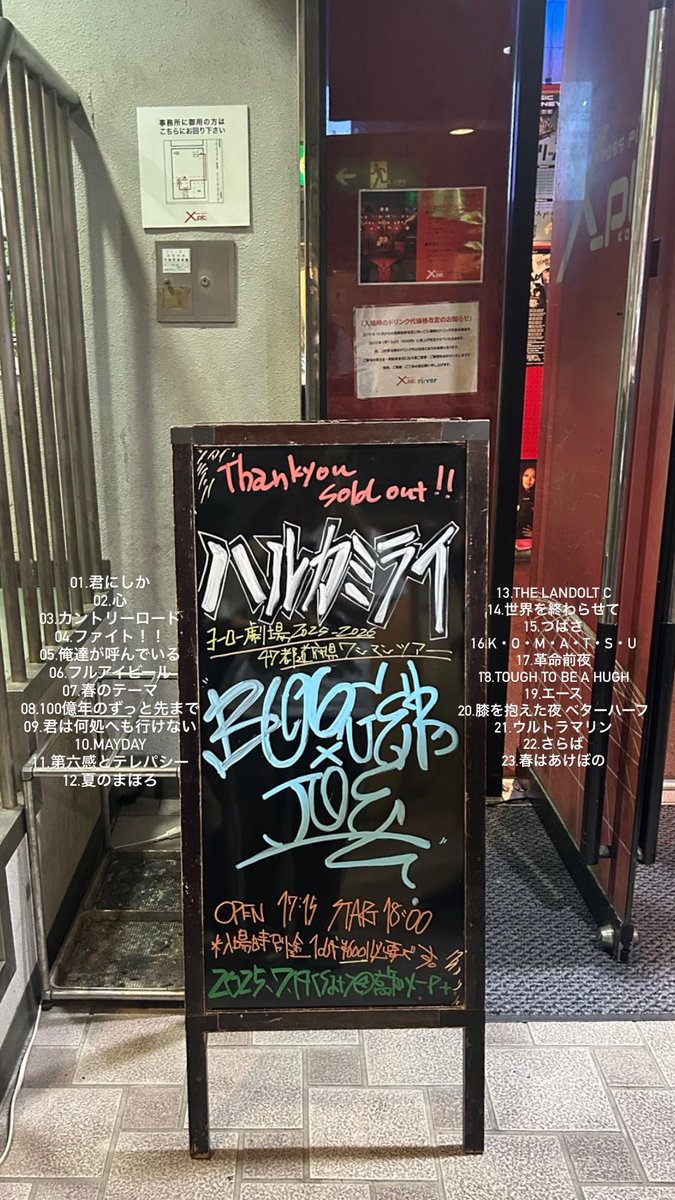 事務所に御用の方は
こちらにお回り下さい
X-pt.
X-pt.
「入場時のドリンク代価格改定のお知らせ」
X-pt. ri:ver
Thankyou
sold out!!
ハルカミライ
ヨーロー劇場2025-2026
47都道府県ワンマンツアー
JOE
OPEN 17:15 START 18:00
01.君にしか
02.心
03.カントリーロード
04.ファイト！！
05.俺達が呼んでいる
06.フルアイビール
07.春のテーマ
08.100億年のずっと先まで
09.君は何処へも行けない
10.MAYDAY
11.第六感とテレパシー
12.夏のまほろ
13.THE LANDOLT C
14.世界を終わらせて
15.つばさ
16.K・O・M・A・T・S・U
17.革命前夜
18.TOUGH TO BE A HUGH
19.エース
20.膝を抱えた夜 ベターハーフ
21.ウルトラマリン
22.さらば
23.春はあけぼの